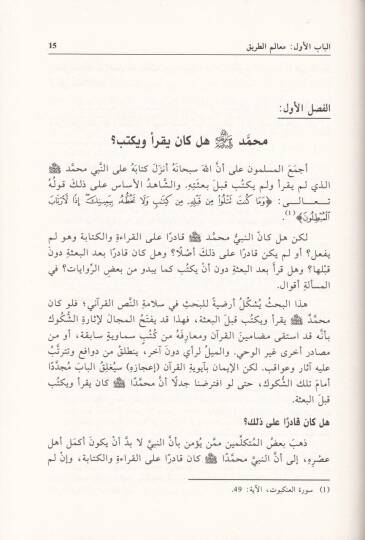 الباب الأول: معالم الطريق 15
الفصل الأول:
محمَّد ﷺ هل كان يقرأ ويكتب؟
أجمَعَ المسلمون على أنَّ اللهَ سبحانَهُ أنزَلَ كتابَهُ على النَّبي محمدٍ ﷺ
الذي لم يقرأْ ولم يكتُب قبلَ بعثتِهِ. والشَّاهدُ الأساس على ذلكَ قولُهُ
تعـالـى: ﴿وَمَا كُنتَ نَتْلُواْ مِن قَبْلِهِ مِن كِتَٰبٍ وَلَا تَخُطُّهُ بِيَمِينِكَ إِذًا لَّارْتَابَ
الْمُبْطِلُونَ﴾(1).
لكن هل كانَ النبيُّ محمَّد ﷺ قادرًا على القراءةِ والكتابة وهو لم
يفعل؟ أو لم يكن قادرًا على ذلكَ أصلًا؟ وهل كان قادرًا بعد البعثةِ دونَ
قبلها؟ وهل قرأَ بعد البعثةِ دون أنْ يكتُب كما يبدو من بعضِ الرِّوايات؟ في
المسألةِ أقوال.
هذا البحثُ يُشكِّلُ أرضيةً للبحثِ في سلامةِ النَّص القرآني؛ فلو كان
محمَّدٌ ﷺ يقرأ ويكتُب قبلَ البعثة، فهذا قد يفتحُ المجالَ لإثارةِ الشُّكوك
بأنَّه قد استقى مضامينَ القرآنِ ومعارِفَهُ من كُتُبٍ سماويةٍ سابقة، أو من
مصادر أخرى غير الوحي. والميلُ لرأي دونَ آخر، ينطلقُ من دوافع وتترتَّبُ
عليه آثار وعواقب. لكن الإيمان بآيويةِ القرآن (إعجازه) سيُغلِقُ البابَ مُجدَّدًا
أمامَ تلكَ الشُّكوك، حتى لو افترضنا جدلًا أنَّ محمَّدًا ﷺ كان يقرأ ويكتُب
قبلَ البعثة.
هل كان قادرًا على ذلك؟
ذهبَ بعضُ المُتكلِّمين ممَّن يُؤمن بأنَّ النبيَّ لا بدَّ أنْ يكونَ أكملَ أهل
عصرِه، إلى أنَّ النبي محمَّدًا ﷺ كان قادرًا على القراءةِ والكتابة، وإنْ لم
(1) سورة العنكبوت، الآية: 49.